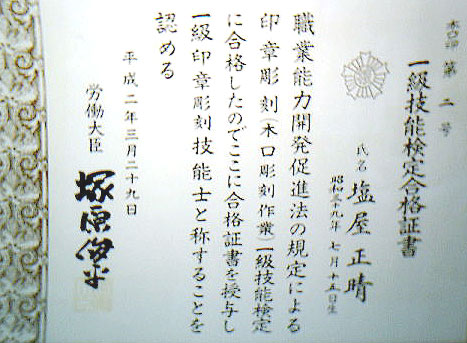 木口印 第二号
一級技能検定合格証書
氏名 塩屋正晴
昭和三九年七月十五日生
職業能力開発促進法の規定による
印章彫刻(木口彫刻作業)一級技能検定
に合格したのでここに合格証書を授与し
一級印章彫刻技能士と称することを
認める
平成二年三月二十九日
労働大臣 塚原俊平